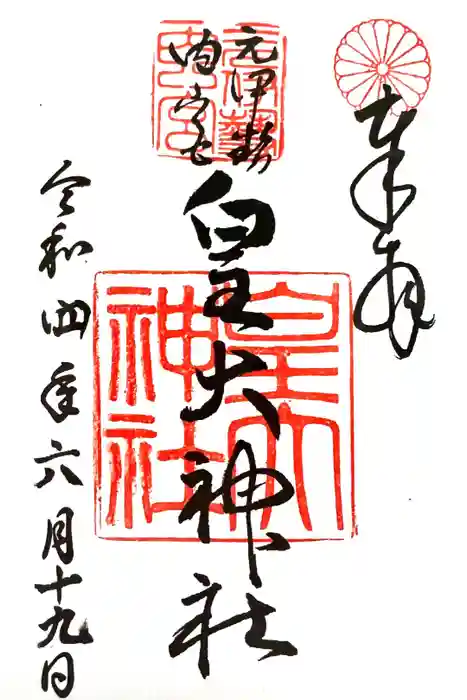 奉拝
元伊勢
内宮
皇大神社
皇大神社
令和四年六月十九日